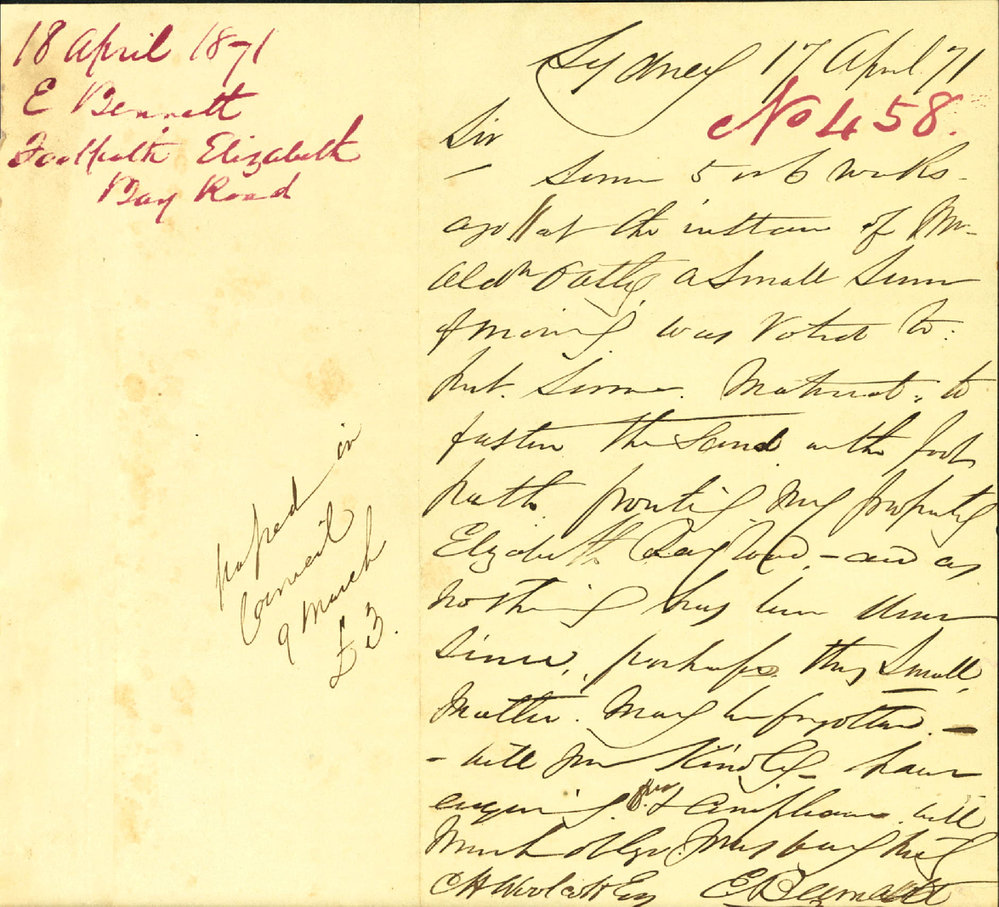 18 April 1871
E Bennett
Footpath Elizabeth
Bay Road
passed in
Council
9 March
£3.
Sydney 17 April 71
No 458.
Sir
Some 5 or 6 weeks
ago at the instance of Mr
Aldn Oatley a small sum
of money was voted to
put some Material to
fasten the Sand on the foot
path fronting my property
Elizabeth Bay Road, - and as
nothing has been done
since, perhaps this small
Matter May be forgotten. -
- will you Kindly have
enquiry & compliance will
Much oblige Yours
C H Woolcott Esq E Bennett